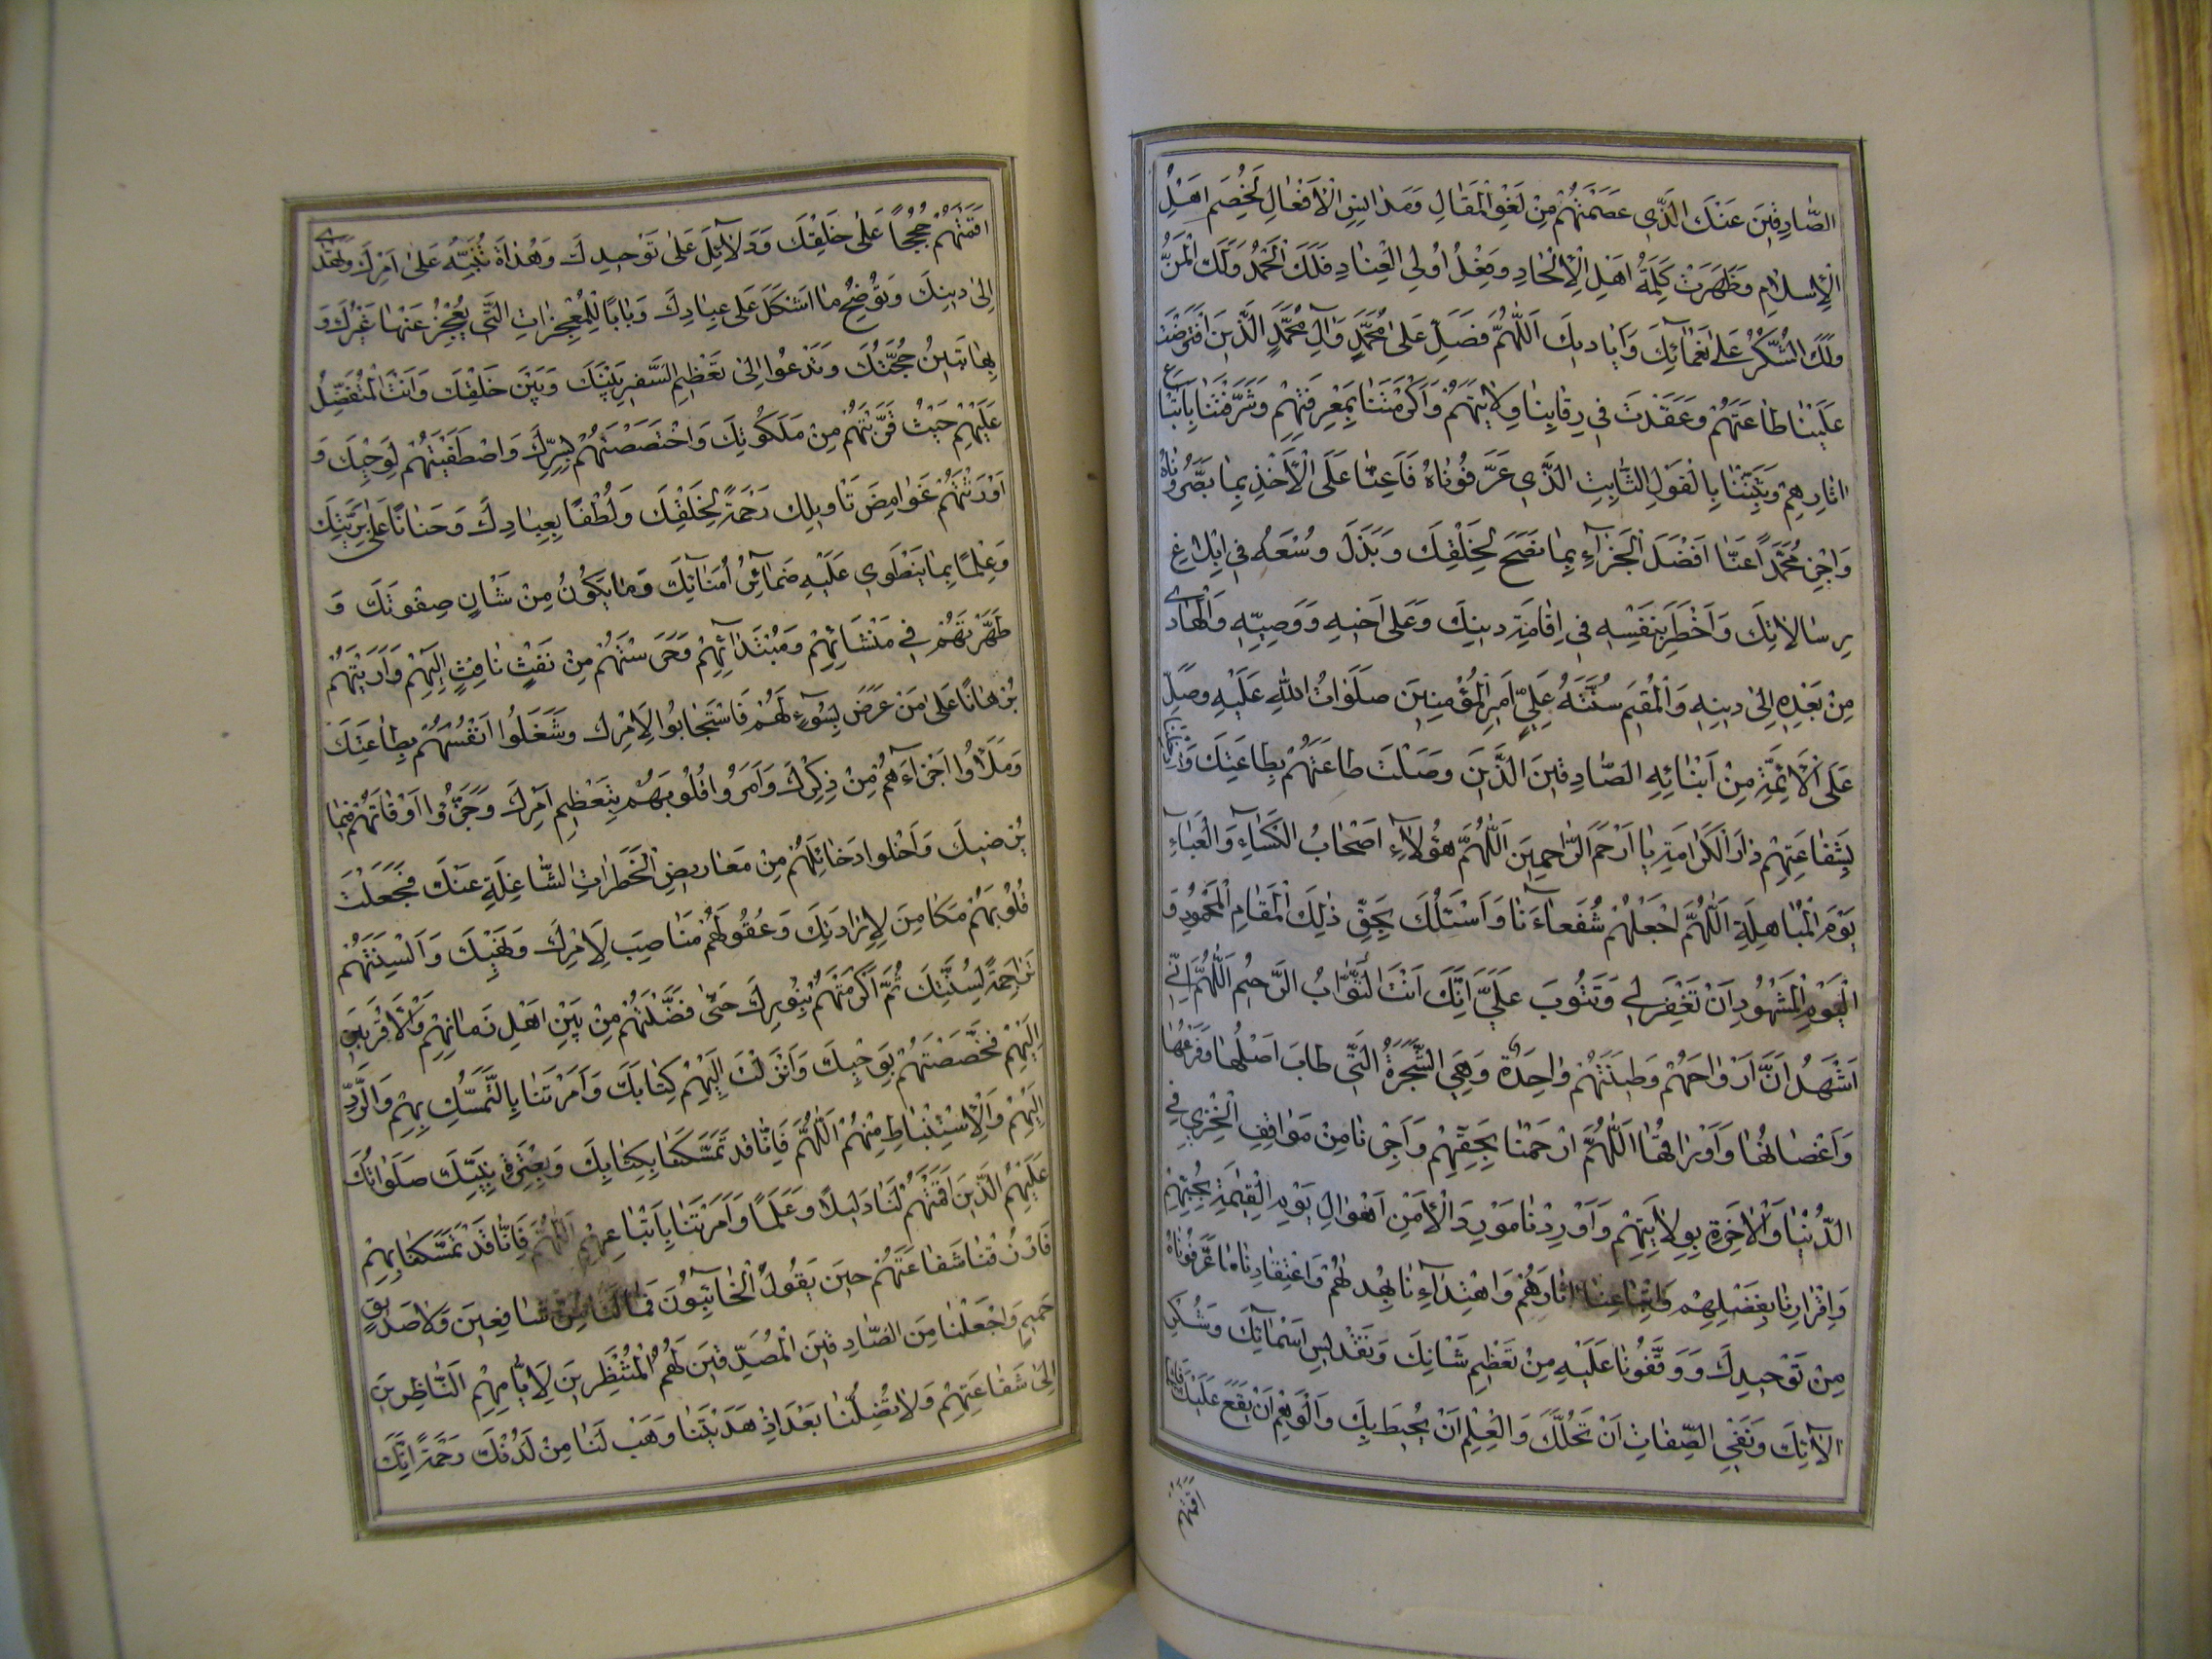 الصّٰادِقينَ عَنْكَ الَّذي عَصَمْتَهُمْ مِنْ لَغْوِ الْمَقٰالِ وَمَدٰانِسِ الْاَفْعٰالِ لَخُصِمَ اَهْلُ
الْاِسْلٰامِ وَظَهَرَتْ كَلِمَةُ اَهْلِ الْاِلْحٰادِ وَفِعْلُ اُولِي الْعِنٰادِ فَلَكَ الْحَمْدُ وَلَكَ الْمَنُّ
وَلَكَ الشُّكْرُ عَلىٰ نَعْمٰآئِكَ وَاَيٰاديكَ اَللّٰهُمَّ فَصَلِّ عَلىٰ مُحَمَّدٍ وَاٰلِ مُحَمَّدٍ الَّذينَ افْتَرَضْتَ
عَلَيْنٰا طٰاعَتَهُمْ وَعَقَدْتَ في رِقٰابِنٰا وِلٰايَتَهُمْ وَاَكْرَمْتَنٰا بِمَعْرِفَتِهِمْ وَشَرَّفْتَنٰا بِاتِّبٰاعِ
اٰثٰارِهِمْ وَثَبَّتْنٰا بِالْقَوْلِ الثّٰابِتِ الَّذي عَرَّفُونٰاهُ فَاَعِنّٰا عَلَى الْاَخْذِ بِمٰا بَصَّرُونٰاهُ
وَاجْزِ مُحَمَّداً عَنّٰا اَفْضَلَ الْجَزٰآءِ بِمٰا نَصَحَ لِخَلْقِكَ وَبَذَلَ وُسْعَهُ في اِبْلٰاغِ
رِسٰالٰاتِكَ وَاَخْطَرَ بِنَفْسِهِ في اِقٰامَةِ دينِكَ وَعَلىٰ اَخيهِ وَوَصِيِّهِ وَالْهٰادي
مِنْ بَعْدِهِ اِلىٰ دينِهِ وَالْمُقيمِ سُنَّتَهُ عَلِيٍّ اَميرِ الْمُؤْمِنينَ صَلَوٰاتُ اللهِ عَلَيْهِ وَصَلِّ
عَلَى الْاَئِمَّةِ مِنْ اَبْنٰائِهِ الصّٰادِقينَ الَّذينَ وَصَلْتَ طٰاعَتَهُمْ بِطٰاعَتِكَ وَاَدْخِلْنٰا
بِشَفٰاعَتِهِمْ دٰارَ الْكَرٰامَةِ يٰا اَرْحَمَ الرّٰاحِمينَ اَللّٰهُمَّ هٰؤُلٰآءِ اَصْحٰابُ الْكِسٰآءِ وَالْعَبٰآءِ
يَوْمَ الْمُبٰاهِلَةِ اَللّٰهُمَّ اجْعَلْهُمْ شُفَعٰآءَنٰا وَاَسْئَلُكَ بِحَقِّ ذٰلِكَ الْمَقٰامِ الْمَحْمُودِ وَ
الْيَوْمِ الْمَشْهُودِ اَنْ تَغْفِرَ لي وَتَتُوبَ عَلَيَّ اِنَّكَ اَنْتَ التَّوّٰابُ الرَّحيمُ اَللّٰهُمَّ اِنّي
اَشْهَدُ اَنَّ اَرْوٰاحَهُمْ وَطينَتَهُمْ وٰاحِدَةٌ وَهِيَ الشَّجَرَةُ الَّتي طٰابَ اَصْلُهٰا وَفَرْعُهٰا
وَاَغْصٰانُهٰا وَاَوْرٰاقُهٰا اَللّٰهُمَّ ارْحَمْنٰا بِحَقِّهِمْ وَاَجِرْنٰا مِنْ مَوٰاقِفِ الْخِزْيِ فِي
الدُّنْيٰا وَالْاٰخِرَةِ بِوِلٰايَتِهِمْ وَاَوْرِدْنٰا مَوْرِدَ الْاَمْنِ مِنْ اَهْوٰالِ يَوْمِ الْقِيٰمَةِ بِحُبِّهِمْ
وَاِقْرٰارِنٰا بِفَضْلِهِمْ وَاتِّبٰاعِنٰا اٰثٰارَهُمْ وَاهْتِدٰآءِنٰا بِهُدٰيهُمْ وَاعْتِقٰادِنٰا مٰا عَرَّفُونٰاهُ
مِنْ تَوْحيدِكَ وَوَقَّفُونٰا عَلَيْهِ مِنْ تَعْظيمِ شَاْنِكَ وَتَقْديسِ اَسْمٰآئِكَ وَشُكْرِ
اٰلٰآئِكَ وَنَفْيِ الصِّفٰاتِ اَنْ تَحُلَّكَ وَالْعِلْمِ اَنْ يُحيطَ بِكَ وَالْوَهْمِ اَنْ يَقَعَ عَلَيْكَ فَاِنَّكَ
اَقَمْتَهُمْ
اَقَمْتَهُمْ حُجَجاً عَلىٰ خَلْقِكَ وَدَلٰآئِلَ عَلىٰ تَوْحيدِكَ وَهُدٰاةً تُنَبِّهُ عَلىٰ اَمْرِكَ وَتَهْدي
اِلىٰ دينِكَ وَتُوضِحُ مٰا اَشْكَلَ عَلىٰ عِبٰادِكَ وَبٰابًا لِلْمُعْجِزٰاتِ الَّتي يَعْجِزُ عَنْهٰا غَيْرُكَ وَ
بِهٰا تَبينُ حُجَّتُكَ وَتَدْعُوا اِلىٰ تَعْظيمِ السَّفيرِ بَيْنَكَ وَبَيْنَ خَلْقِكَ وَاَنْتَ الْمُتَفَضِّلُ
عَلَيْهِمْ حَيْثُ قَرَّبْتَهُمْ مِنْ مَلَكُوتِكَ وَاخْتَصَصْتَهُمْ بِسِرِّكَ وَاصْطَفَيْتَهُمْ لِوَحْيِكَ وَ
اَوْرَثْتَهُمْ غَوٰامِضَ تَاْويلِكَ رَحْمَةً لِخَلْقِكَ وَلُطْفًا بِعِبٰادِكَ وَحَنٰانًا عَلىٰ بَرِيَّتِكَ
وَعِلْمًا بِمٰا يَنْطَوي عَلَيْهِ ضَمٰآئِرُ اُمَنٰآئِكَ وَمٰا يَكُونُ مِنْ شَاْنِ صِفْوَتِكَ وَ
طَهَّرْتَهُمْ في مَنْشَائِهِمْ وَمُبْتَدَائِهِمْ وَحَرَسْتَهُمْ مِنْ نَفْثِ نٰافِثٍ اِلَيْهِمْ وَاَرَيْتَهُمْ
بُرْهٰانًا عَلىٰ مَنْ عَرَضَ بِسُوٓءٍ لَهُمْ فَاسْتَجٰابُوا لِاَمْرِكَ وَشَغَلُوا اَنْفُسَهُمْ بِطٰاعَتِكَ
وَمَلَاُوا اَجْزٰآءَهُمْ مِنْ ذِكْرِكَ وَعَمَرُوا قُلُوبَهُمْ بِتَعْظيمِ اَمْرِكَ وَجَزَّؤُا اَوْقٰاتَهُمْ فيمٰا
يُرْضيكَ وَاَخْلَوا دَخٰائِلَهُمْ مِنْ مَعٰاريضِ الْخَطَرٰاتِ الشّٰاغِلَةِ عَنْكَ فَجَعَلْتَ
قُلُوبَهُمْ مَكٰامِنَ لِاِرٰادَتِكَ وَعُقُولَهُمْ مَنٰاصِبَ لِاَمْرِكَ وَنَهْيِكَ وَاَلْسِنَتَهُمْ
تَرٰاجِمَةً لِسُنَّتِكَ ثُمَّ اَكْرَمْتَهُمْ بِنُورِكَ حَتّىٰ فَضَّلْتَهُمْ مِنْ بَيْنِ اَهْلِ زَمٰانِهِمْ وَالْاَقْرَبينَ
اِلَيْهِمْ فَخَصَصْتَهُمْ بِوَحْيِكَ وَاَنْزَلْتَ اِلَيْهِمْ كِتٰابَكَ وَاَمَرْتَنٰا بِالتَّمَسُّكِ بِهِمْ وَالرَّدِّ
اِلَيْهِمْ وَالْاِسْتِنْبٰاطِ مِنْهُمْ اَللّٰهُمَّ فَاِنّٰا قَدْ تَمَسَّكْنٰا بِكِتٰابِكَ وَبِعِتْرَةِ نَبِيِّكَ صَلَوٰاتُكَ
عَلَيْهِمُ الَّذينَ اَقَمْتَهُمْ لَنٰا دَليلًا وَعَلَمًا وَاَمَرْتَنٰا بِاتِّبٰاعِهِمْ اَللّٰهُمَّ فَاِنّٰا قَدْ تَمَسَّكْنٰا بِهِمْ
فَارْزُقْنٰا شَفٰاعَتَهُمْ حينَ يَقُولُ الْخٰآئِبُونَ فَمٰا لَنٰا مِنْ شٰافِعينَ وَلٰا صَديقٍ
حَميمٍ وَاجْعَلْنٰا مِنَ الصّٰادِقينَ الْمُصَدِّقينَ لَهُمُ الْمُنْتَظِرينَ لِاَيّٰامِهِمْ النّٰاظِرينَ
اِلىٰ شَفٰاعَتِهِمْ وَلٰا تُضِلَّنٰا بَعْدَ اِذْ هَدَيْتَنٰا وَهَبْ لَنٰا مِنْ لَدُنْكَ رَحْمَةً اِنَّكَ